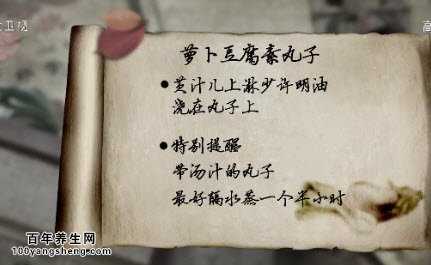 萝卜豆腐素丸子
●芡汁儿上淋少许明油
浇在丸子上
●特别提醒
带汤汁的丸子
最好隔水蒸一个半小时
百年养生网
www.100yangsheng.com